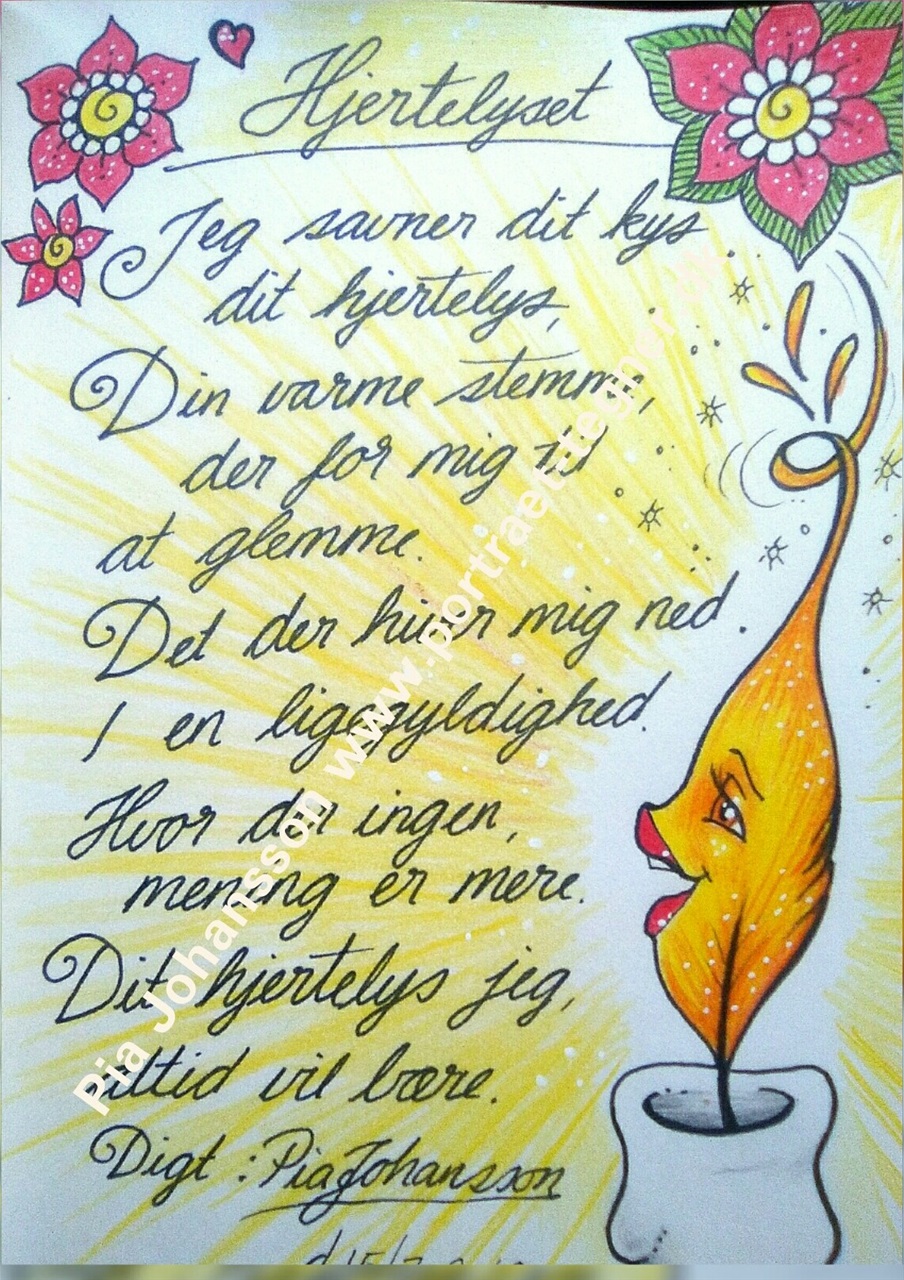 Hjertelyset
Jeg savner dit kys
dit hjertelys,
Din varme stemme,
der for mig til
at glemme.
Det der hiver mig ned.
I en ligegyldighed.
Hvor der ingen,
mening er mere.
Dit hjertelys jeg,
altid vil bære.
Digt : Pia Johansson
Pia Johansson www.portraet-tegner.dk